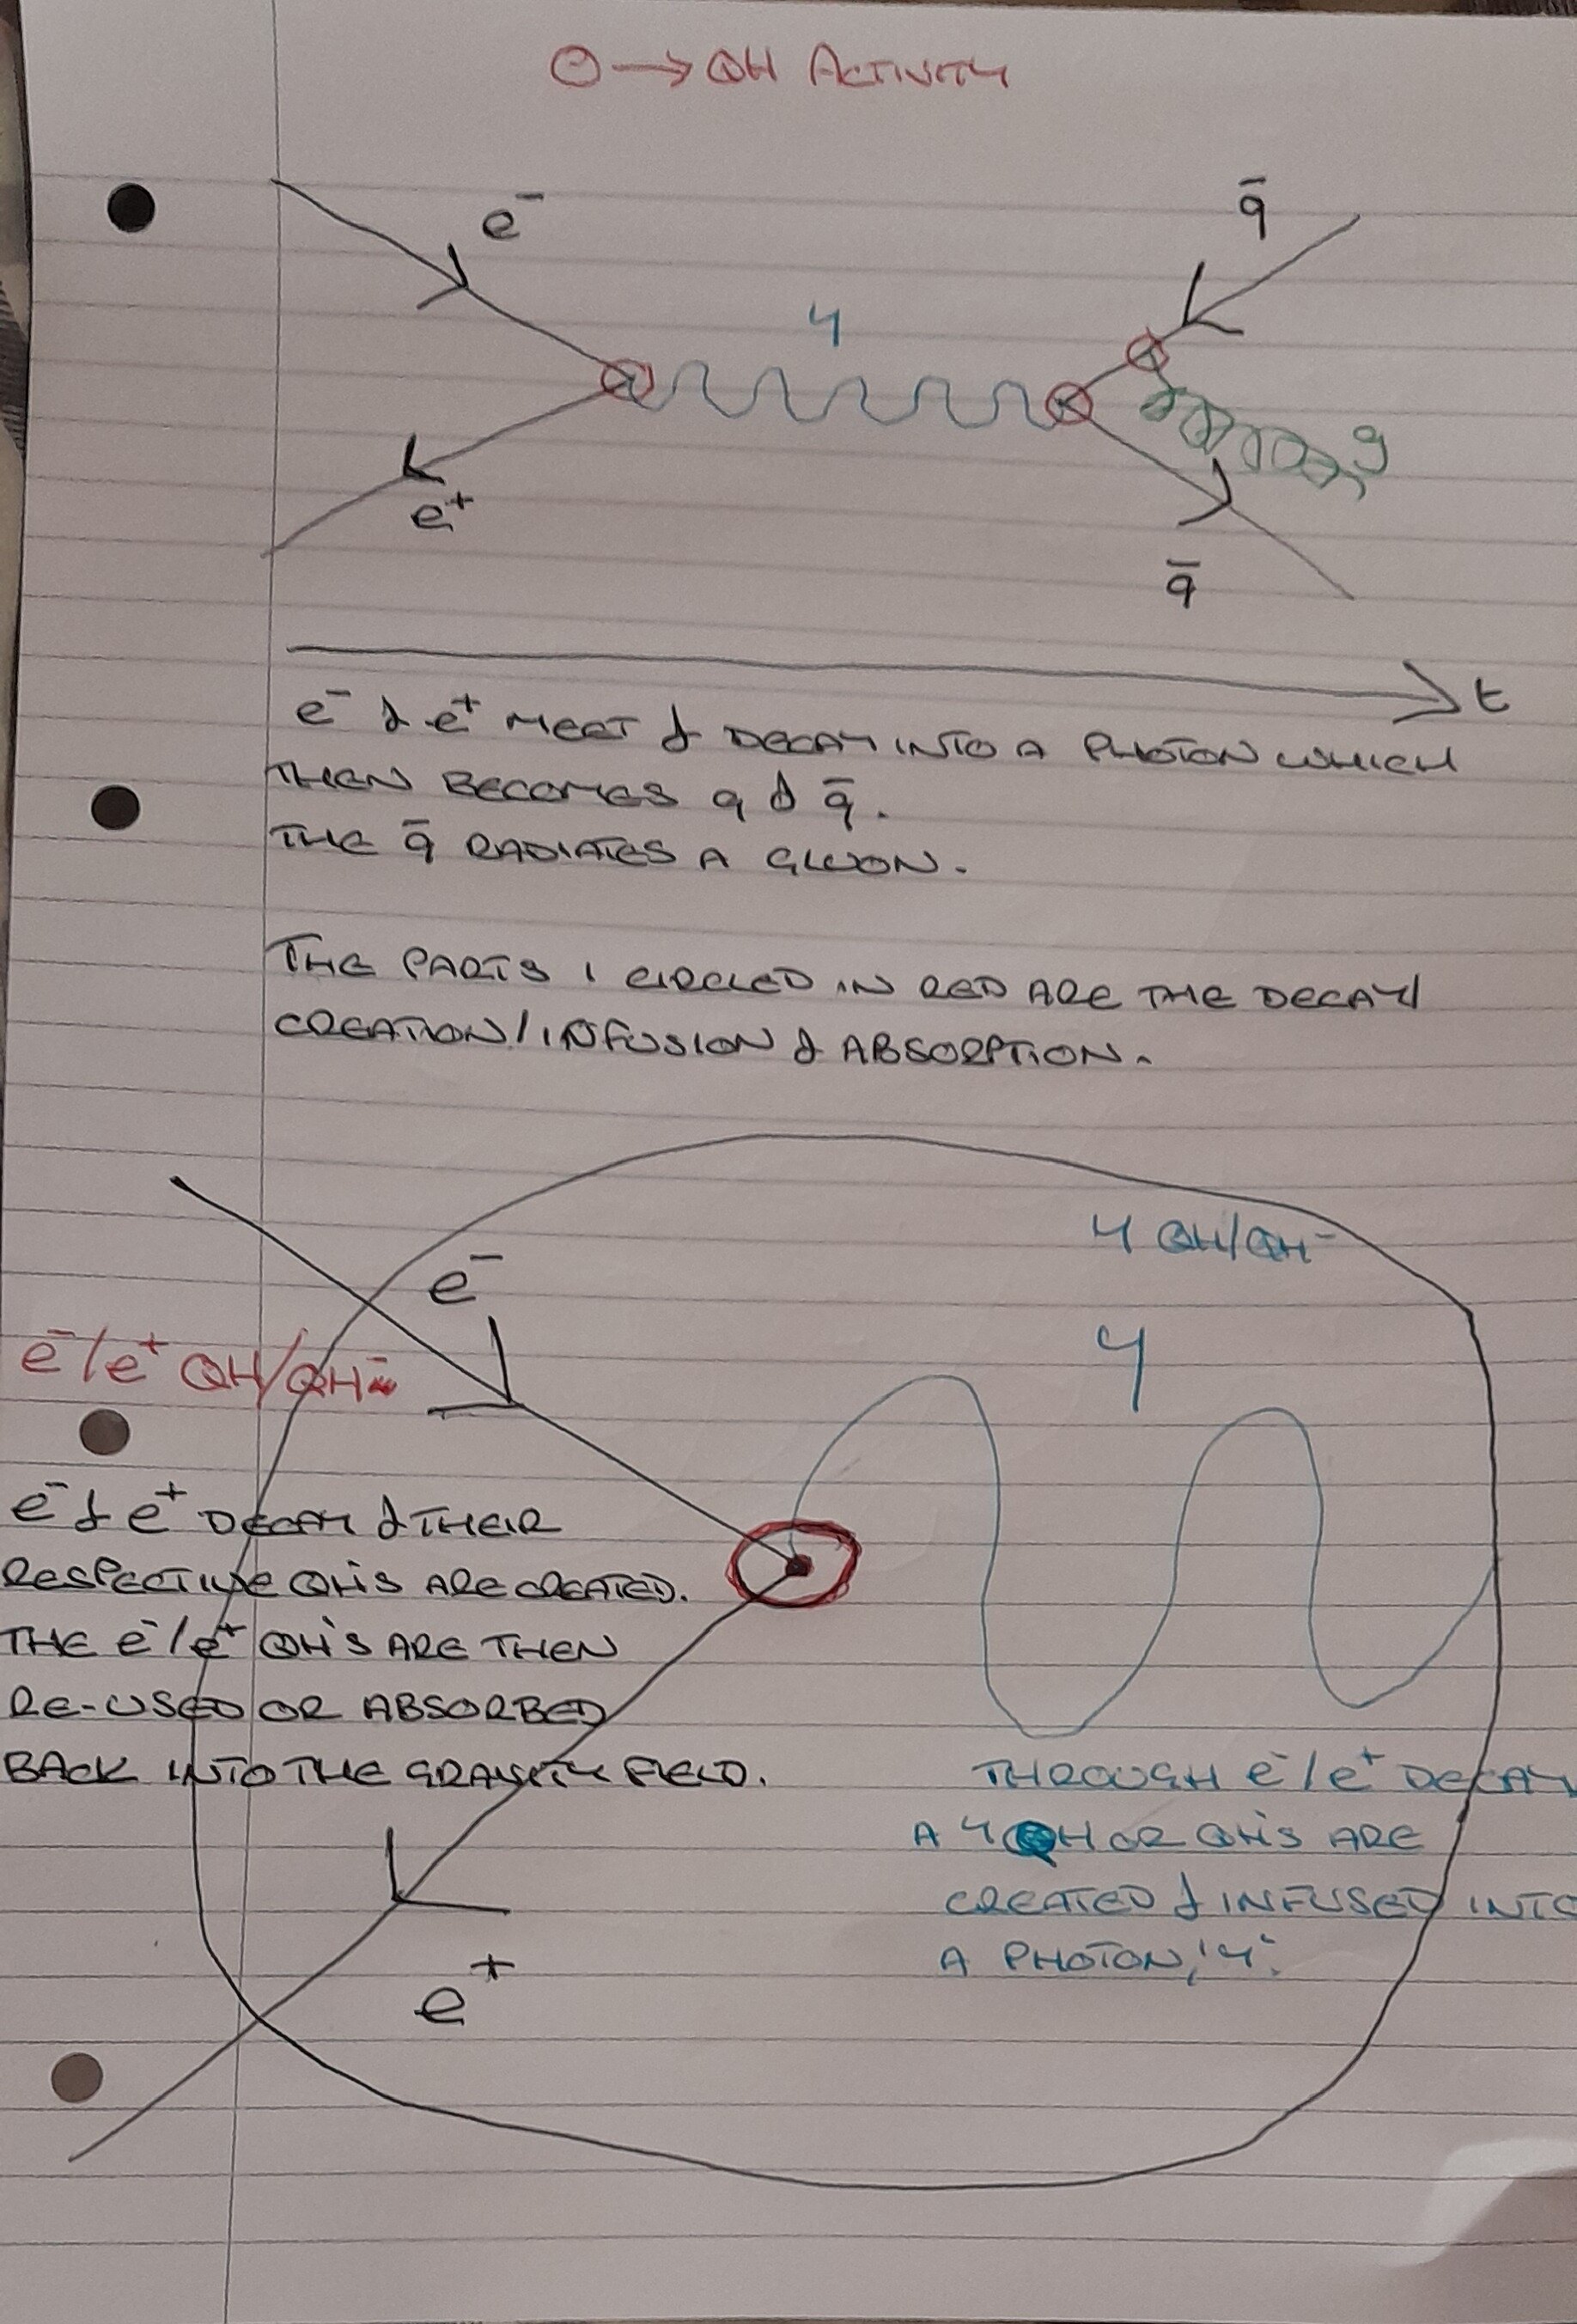 ⊖ → QH ACTIVITY
e⁻
q̄
γ
g
e⁺
q̄
t
e⁻ & e⁺ MEET & DECAY INTO A PHOTON WHICH
THEN BECOMES q & q̄.
THE q̄ RADIATES A GLUON.
THE PARTS I CIRCLED IN RED ARE THE DECAY/
CREATION/INFUSION & ABSORPTION.
γ QH/QH⁻
e⁻
γ
e⁻/e⁺ QH/QH⁻
e⁻ & e⁺ DECAY & THEIR
RESPECTIVE QH'S ARE CREATED.
THE e⁻/e⁺ QH'S ARE THEN
RE-USED OR ABSORBED
BACK INTO THE GRAVITY FIELD.
THROUGH e⁻/e⁺ DECAY
A γ QH OR QH'S ARE
CREATED & INFUSED INTO
A PHOTON, 'γ'.
e⁺